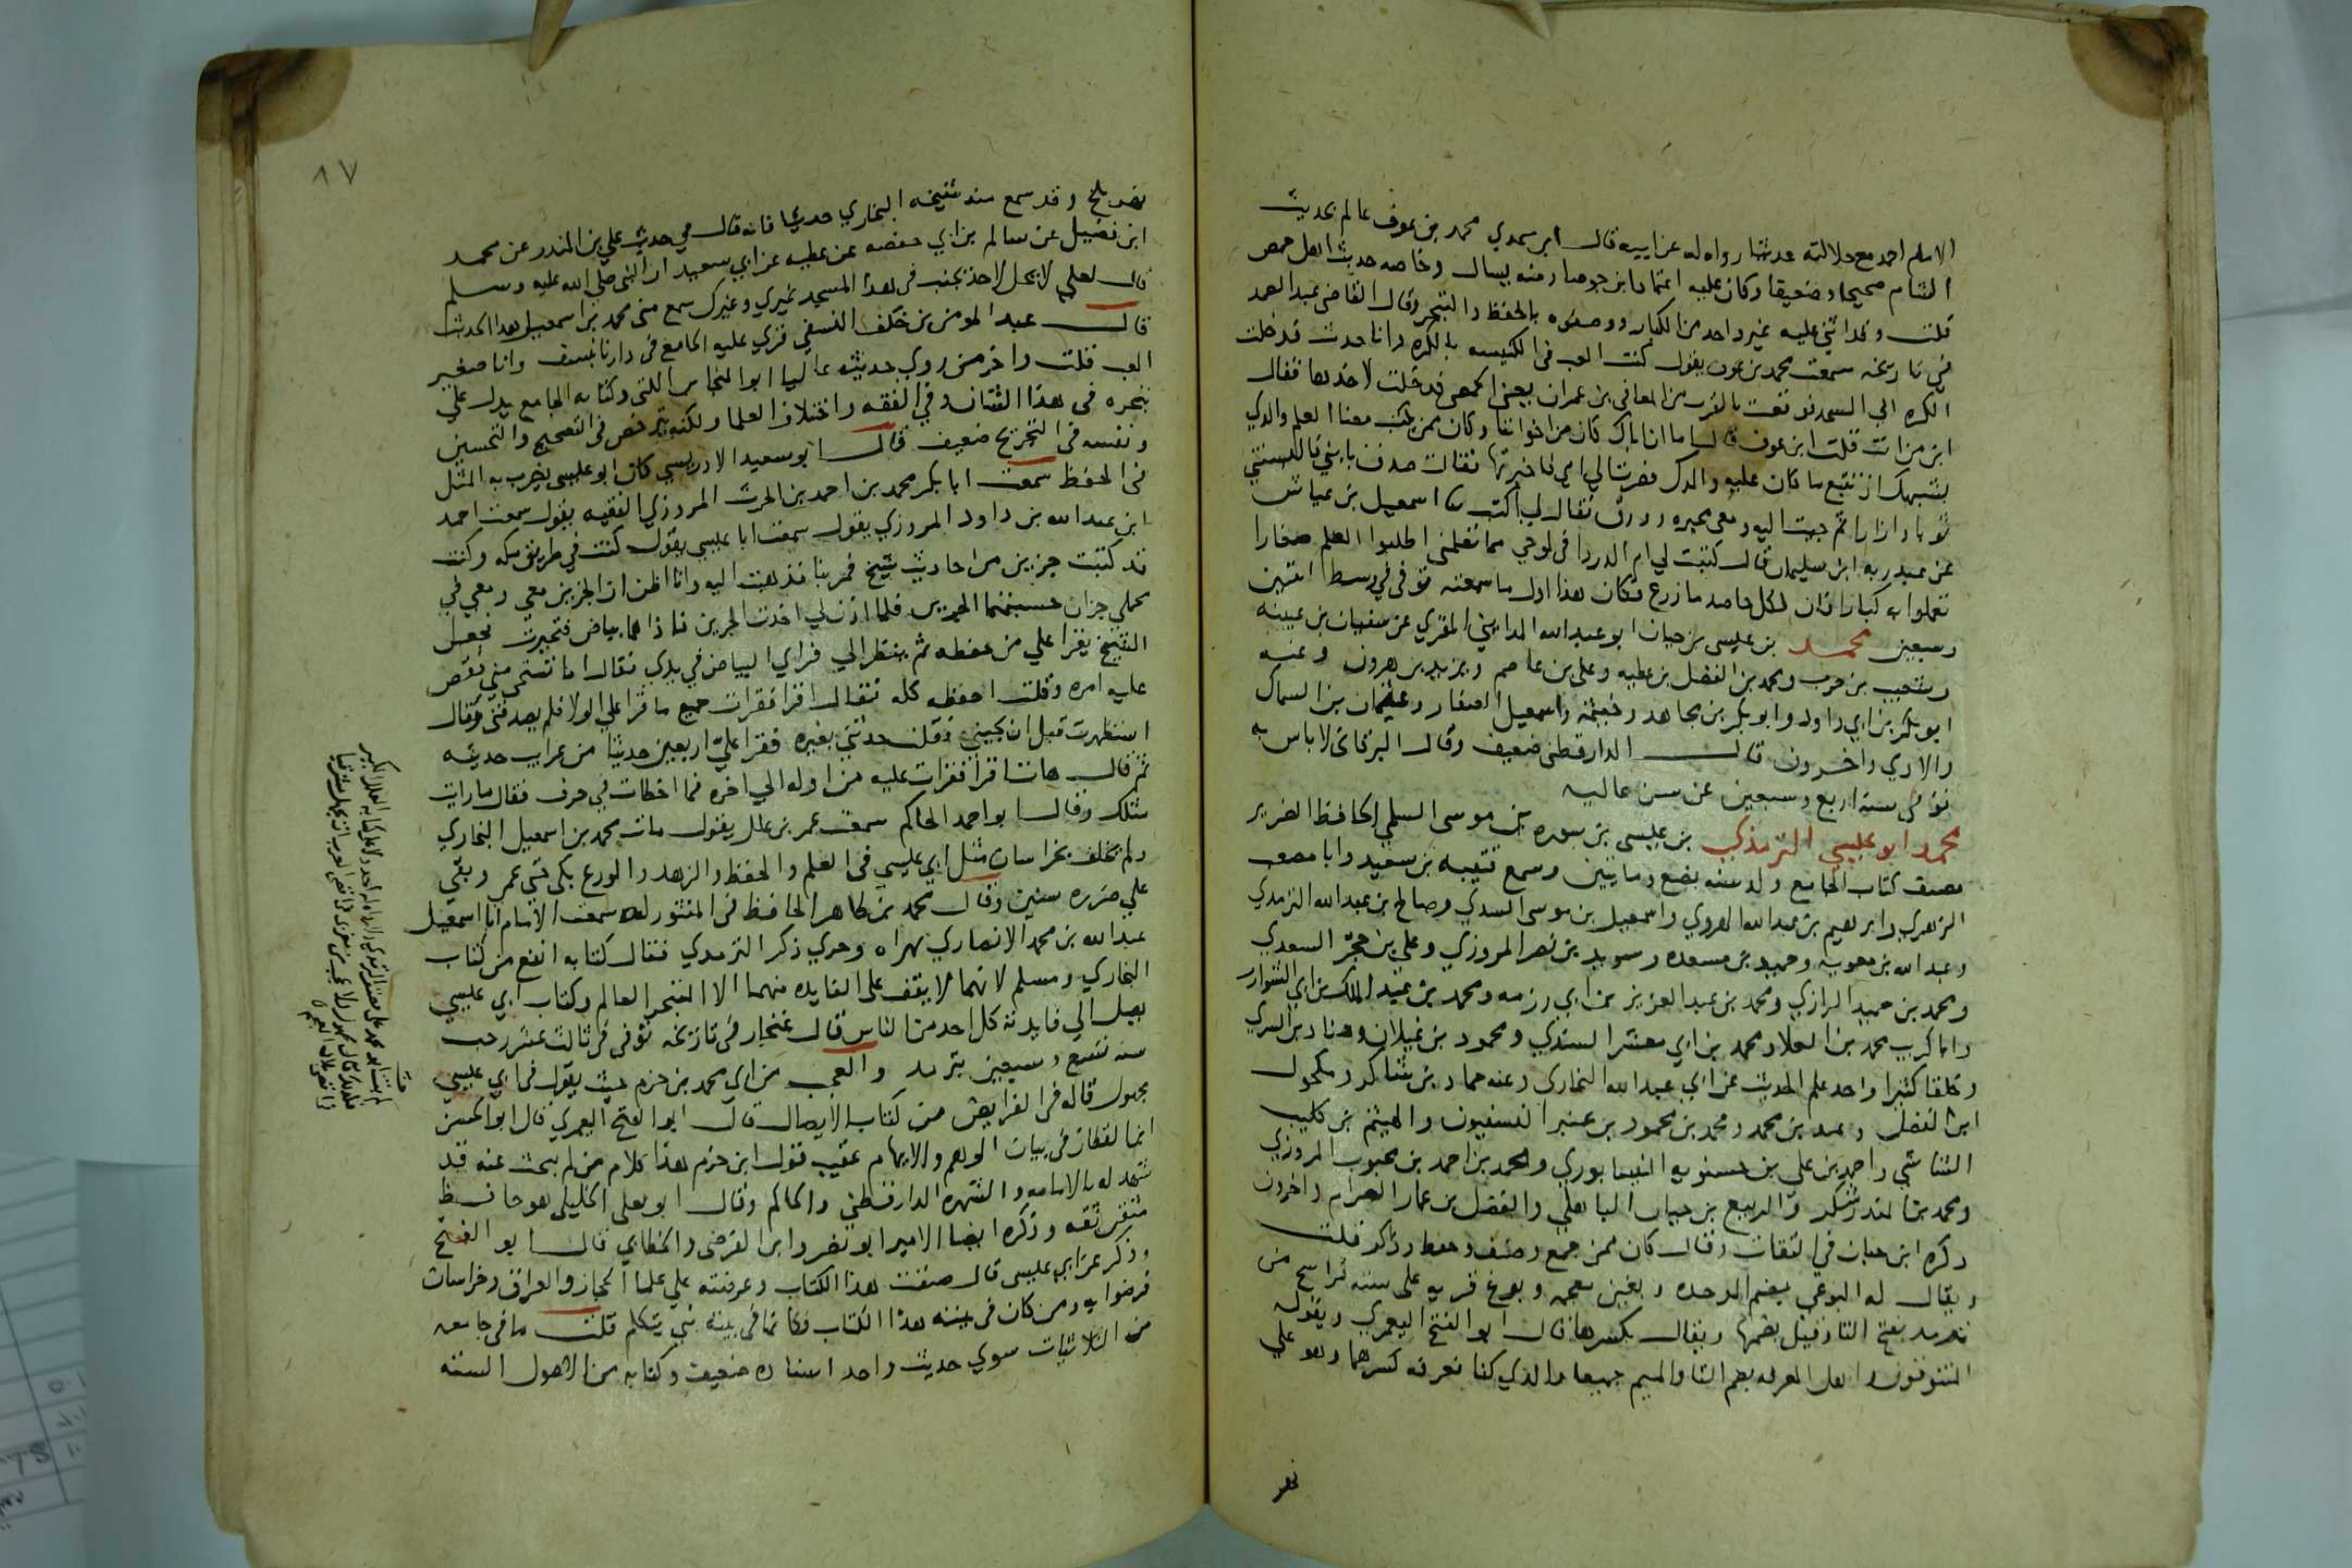 الامام احمد مع جلالته حدثنا رواه له عن ابيه قال ابن عدي محمد بن عوف عالم بحديث
الشام صحيحا وضعيفا وكان عليه اعتماد ابن جوصا ومنه يسال وخاصه حديث اهل حمص
قلت وقد اثنى عليه غير واحد من الكبار ووصفوه بالحفظ والتبحر وقال القاضي عبد الصمد
في تاريخه سمعت محمد بن عوف يقول كنت العب في الكنيسه بالكره وانا حدث فدخلت
الكره الي المسجد فوقعت بالقرب من المعافى بن عمران يعني الحمصي فدخلت لاخذها فقال
ابن من انت قلت ابن عوف قال اما ان اباك كان من اخواننا وكان ممن يكتب معنا العلم والذي
يشبهك ان تتبع ما كان عليه والدك فصرت الي امي فاخبرتها فقالت صدق يا بني فالبستني
ثوبا وازارا ثم جيت اليه ومعي محبره وورق فقال لي اكتب ثنا اسمعيل بن عياش
عن عبد ربه ابن سليمان قال كتبت لي ام الدردا في لوحي مما تعلمني اطلبوا العلم صغارا
تعملوا به كبارا فان لكل حاصد ما زرع فكان هذا اول ما سمعته توفي في وسط اثنتين
وسبعين محمد بن عيسى بن حيان ابو عبد الله المدايني المقري عن سفيان بن عيينه
وشعيب بن حرب ومحمد بن الفضل بن عطيه وعلي بن عاصم ويزيد بن هرون وعنه
ابو بكر بن ابي داود وابو بكر بن مجاهد وخيثمه واسمعيل الصفار وعثمان بن السماك
والادمي واخرون قال الدارقطني ضعيف وقال البرقاني لا باس به
توفي سنة اربع وسبعين عن سن عاليه
محمد ابو عيسي الترمذي بن عيسى بن سوره بن موسى السلمي الحافظ الضرير
مصنف كتاب الجامع ولد سنه بضع ومايتين وسمع قتيبه بن سعيد وابا مصعب
الزهري وابرهيم بن عبد الله الهروي واسمعيل بن موسى السدي وصالح بن عبد الله الترمذي
وعبد الله بن معويه وحميد بن مسعده وسويد بن نصر المروزي وعلي بن حجر السعدي
ومحمد بن حميد الرازي ومحمد بن عبد العزيز بن ابي رزمه ومحمد بن عبد الملك بن ابي الشوارب
وابا كريب محمد بن العلا ومحمد بن ابي معشر السندي ومحمود بن غيلان وهناد بن السري
وخلقا كثيرا واخذ علم الحديث عن ابي عبد الله البخاري وعنه حماد بن شاكر ومكحول
ابن الفضل وعبد بن محمد ومحمد بن محمود بن عنبر النسفيون والهيثم بن كليب
الشاشي واحمد بن علي بن حسنويه النيسابوري ومحمد بن احمد بن محبوب المروزي
ومحمد بن المنذر شكر والربيع بن حيان الباهلي والفضل بن عمار الصرام واخرون
ذكره ابن حبان في الثقات وقال كان ممن جمع وصنف وحفظ وذاكر قلت
ويقال له البوغي بضم الموحده وبغين معجمه وبوغ قريه على سته فراسخ من
ترمذ بفتح التا وقيل بضمها ويقال بكسرها قال ابو الفتح اليعمري ويقوله
المتنوقون واهل المعرفه بضم التا والميم جميعا والذي كنا نعرفه كسرهما وهو علي
نهر
٨٧
نهر بلخ وقد سمع منه شيخه البخاري حديثا فانه قال في حديث علي بن المنذر عن محمد
ابن فضيل عن سالم بن ابي حفصه عن عطيه عن ابي سعيد ان النبي صلي الله عليه وسلم
قال لعلي لا يحل لاحد يجنب في هذا المسجد غيري وغيرك سمع مني محمد بن اسمعيل هذا الحديث
قال عبد المومن بن خلف النسفي قري عليه الجامع في دارنا بنسف وانا صغير
العب قلت واخر من روى حديثه عاليا ابو المنجا بن اللتي وكتابه الجامع يدل علي
تبحره في هذا الشان وفي الفقه واختلاف العلما ولكنه يترخص في التصحيح والتحسين
ونفسه في التخريج ضعيف قال ابو سعيد الادريسي كان ابو عيسى يضرب به المثل
في الحفظ سمعت ابا بكر محمد بن احمد بن الحرث المروزي الفقيه يقول سمعت احمد
ابن عبد الله بن داود المروزي يقول سمعت ابا عيسي يقول كنت في طريق مكه وكنت
قد كتبت جزين من احاديث شيخ فمر بنا فذهبت اليه وانا اظن ان الجزين معي ومعي في
محملي جزان حسبتهما الجزين فلما اذن لي اخذت الجزين فاذا هما بياض فتحيرت فجعل
الشيخ يقرا علي من حفظه ثم ينظر الي فراي البياض في يدي فقال اما تستحي مني فقصصت
عليه امره وقلت احفظه كله فقال اقرا فقرات جميع ما قرا علي الولا فلم يصدقني وقال
استظهرت قبل ان تجيني فقلت حدثني بغيره فقرا علي اربعين حديثا من غرايب حديثه
ثم قال هات اقرا فقرات عليه من اوله الي اخره فما اخطات في حرف فقال ما رايت
مثلك وقال ابو احمد الحاكم سمعت عمر بن علك يقول مات محمد بن اسمعيل البخاري
ولم يخلف بخراسان مثل ابي عيسي في العلم والحفظ والزهد والورع بكى حتي عمي وبقي
علي ضرره سنين وقال محمد بن طاهر الحافظ في المنثور له سمعت الامام ابا اسمعيل
عبد الله بن محمد الانصاري بهراه وجرى ذكر الترمذي فقال كتابه انفع من كتاب
البخاري ومسلم لانهما لا يقف على الفايده منهما الا المتبحر العالم وكتاب ابي عيسي
يصل الي فايدته كل احد من الناس قال غنجار في تاريخه توفي في ثالث عشر رجب
سنه تسع وسبعين بترمذ والعجب من ابي محمد بن حزم حيث يقول في ابي عيسي
مجهول قاله في الفرايض من كتاب الايصال قال ابو الفتح اليعمري قال ابو الحسن
ابن القطان في بيان الوهم والايهام عقيب قول ابن حزم هذا كلام من لم يبحث عنه قد
شهد له بالامامه والشهره الدارقطني والحاكم وقال ابو يعلى الخليلي هو حافظ
متقن ثقه وذكره ايضا الامير ابو نصر وابن الفرضي والخطابي قال ابو الفتح
وذكر عن ابي عيسى قال صنفت هذا الكتاب وعرضته علي علما الحجاز والعراق وخراسان
فرضوا به ومن كان في بيته هذا الكتاب فكانما في بيته نبي يتكلم قلت ما في جامعه
من الثلاثيات سوي حديث واحد اسناده ضعيف وكتابه من الاصول السته